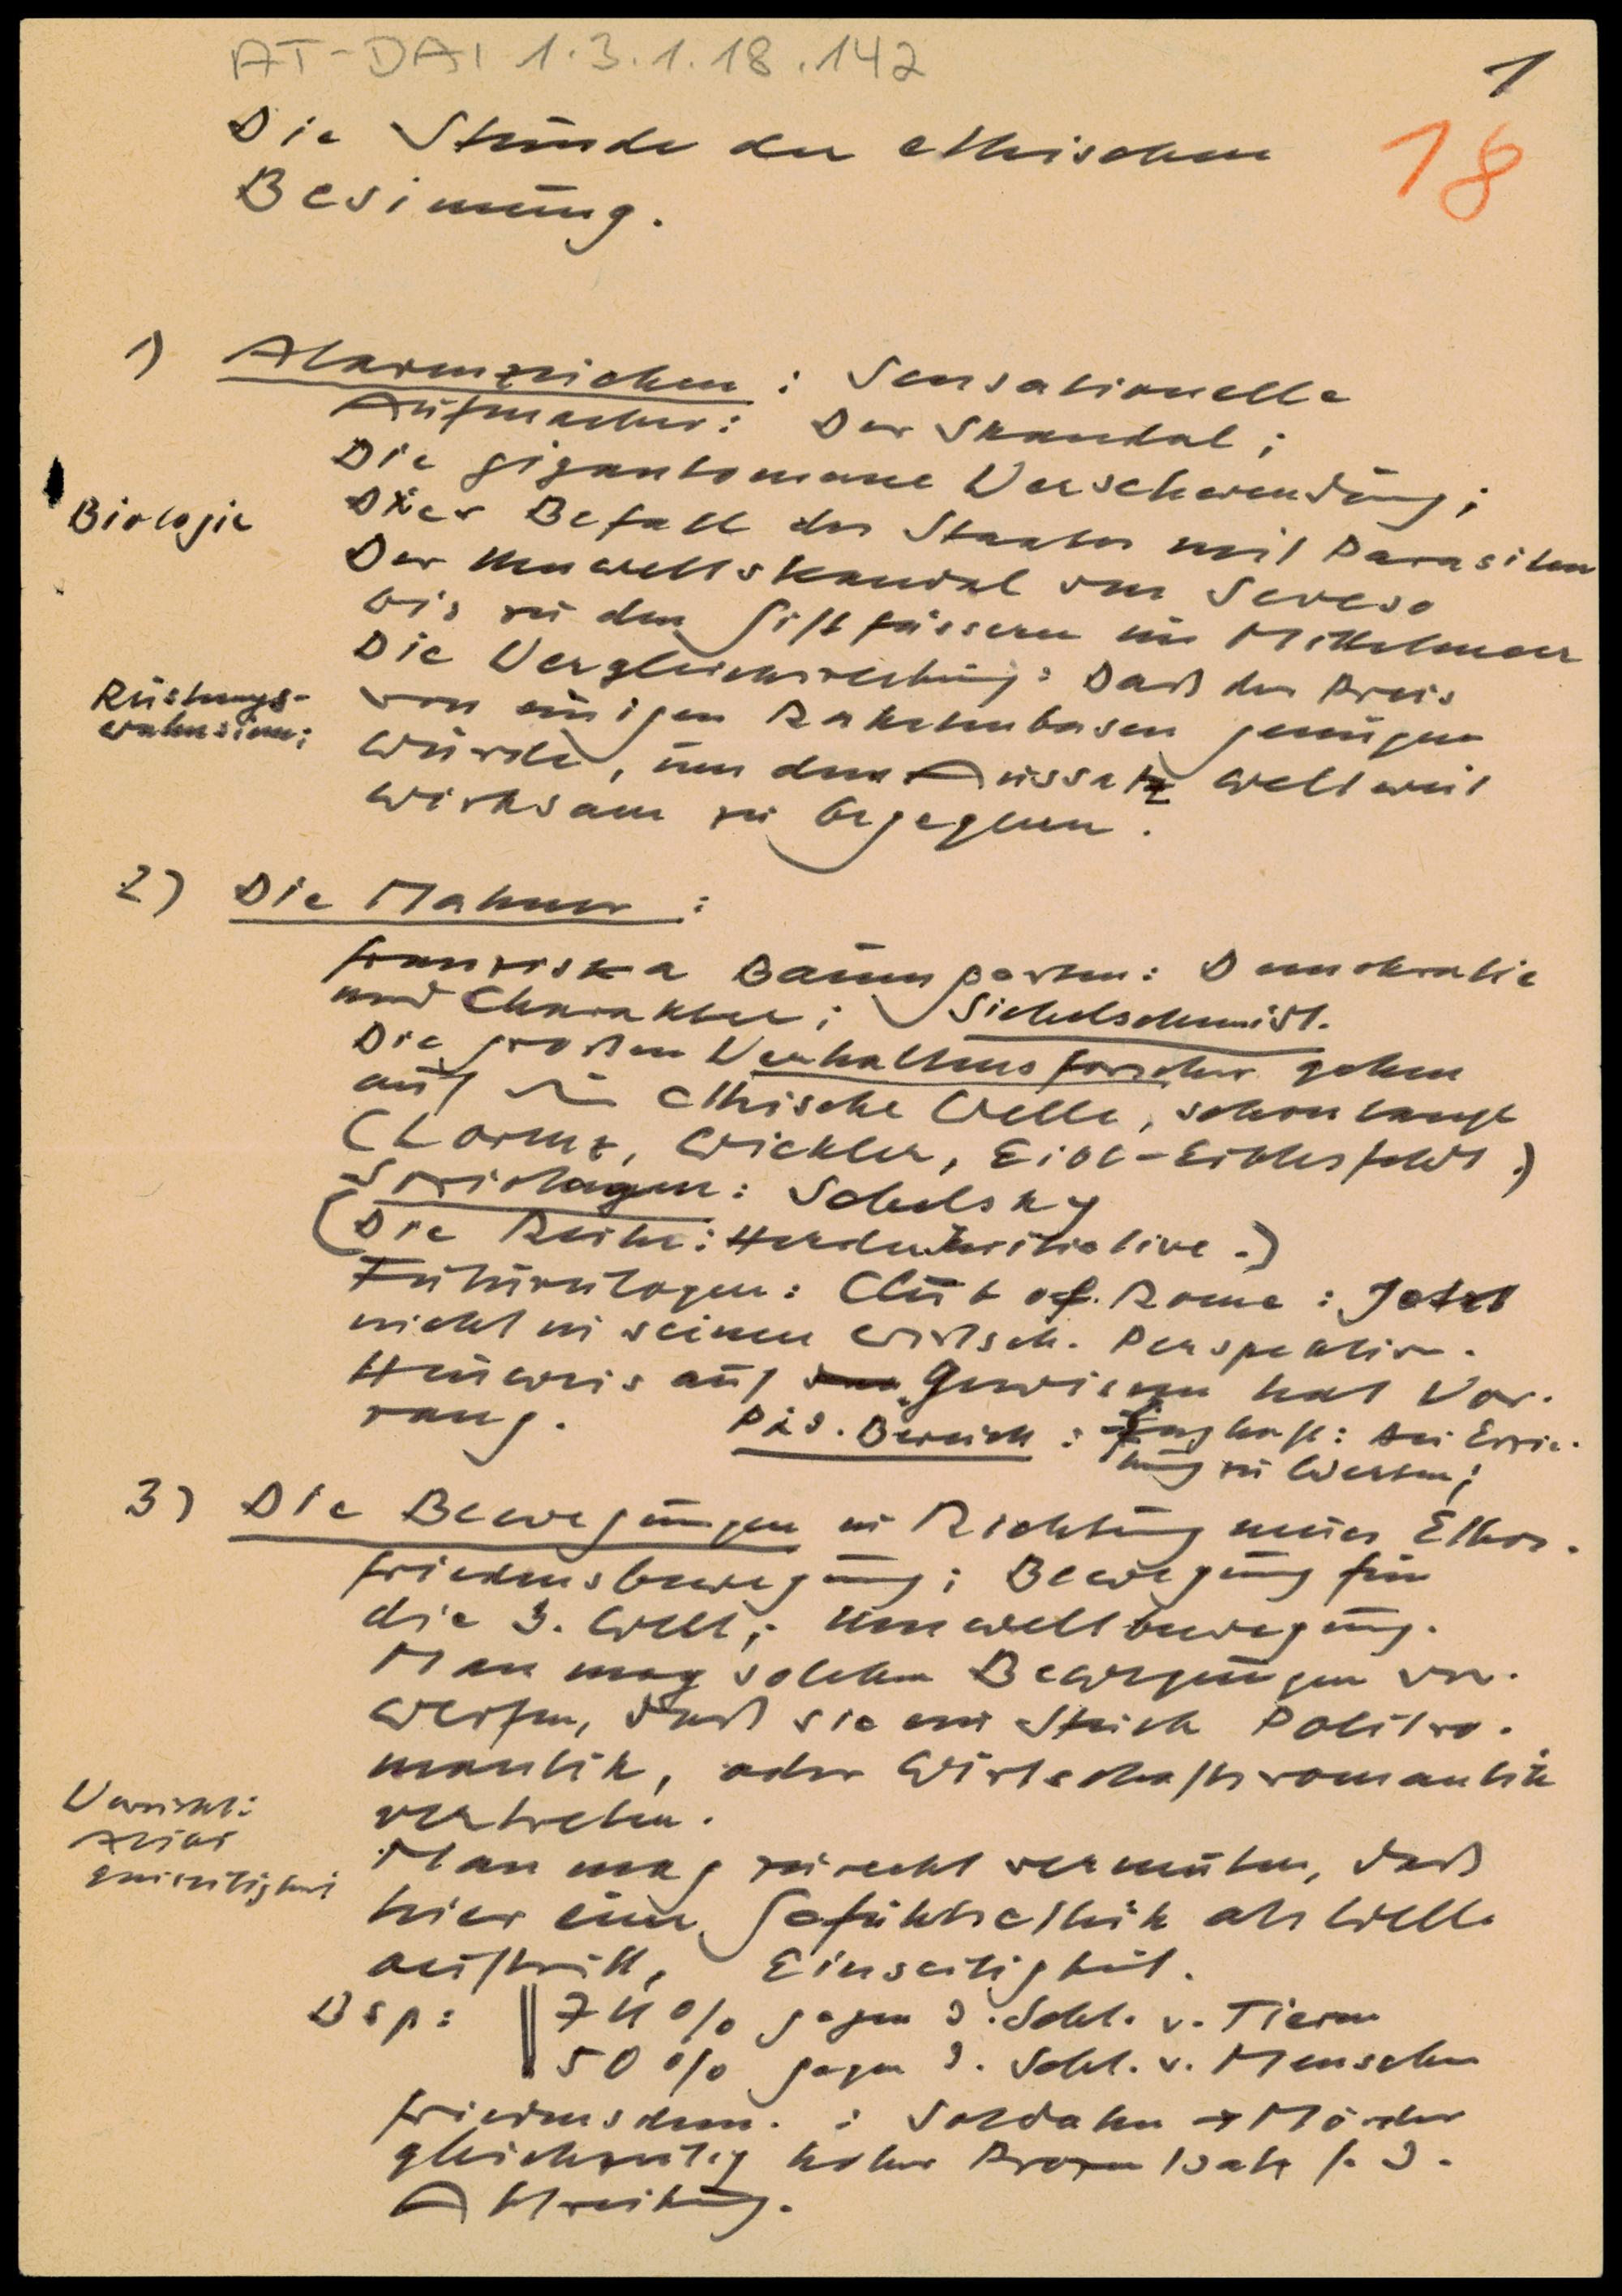 AT-DAI 1.3.1.18.142
1
18
Die Stunde der ethischen
Besinnung.
1) Alarmzeichen : Sensationelle
Aufmacher: Der Skandal ;
Die gigantomane Verschwendung ;
Biologie
Der Befall des Staates mit Parasiten
Der Umweltskandal von Seveso
bis zu den Giftfässern im Mittelmeer
Die Vergleichsrechnung: Daß der Preis
Rüstungs-
wahnsinn:
von einigen Raketenbasen genügen
würde, um dem Aussatz weltweit
wirksam zu begegnen.
2) Die Mahner :
Franziska Baumgarten: Demokratie
und Charakter ; Sichelschmidt.
Die großen Verhaltensforscher gehen
auf die ethische Welle, schon lange
(Lorenz, Wickler, Eibl-Eibesfeldt.)
Soziologen: Schelsky
(Die Reihe: Herder Initiative.)
Futurologen: Club of. Rome : Jetzt
nicht in seinen wirtsch. Perspektiv.
Hinweis auf Gewissen hat Vor-
rang. Päd. Bereich : Zaghaft: die Erzie-
hung zu Werten ;
3) Die Bewegungen in Richtung neues Ethos.
Friedensbewegung ; Bewegung für
die 3. Welt ; Umweltbewegung.
Man mag solchen Bewegungen vor-
werfen, daß sie ein Stück Politro-
mantik, oder Wirtschaftsromantik
vertreten.
Man mag zurecht vermuten, daß
hier eine Gefühlsethik als Welle
auftritt, Einseitigkeit.
Bsp: 74 % gegen d. Scht. v. Tieren
50 % gegen d. Scht. v. Menschen
Friedensdem. : Soldaten → Mörder
gleichzeitig hoher Prozentsatz f. d.
Abtreibung.